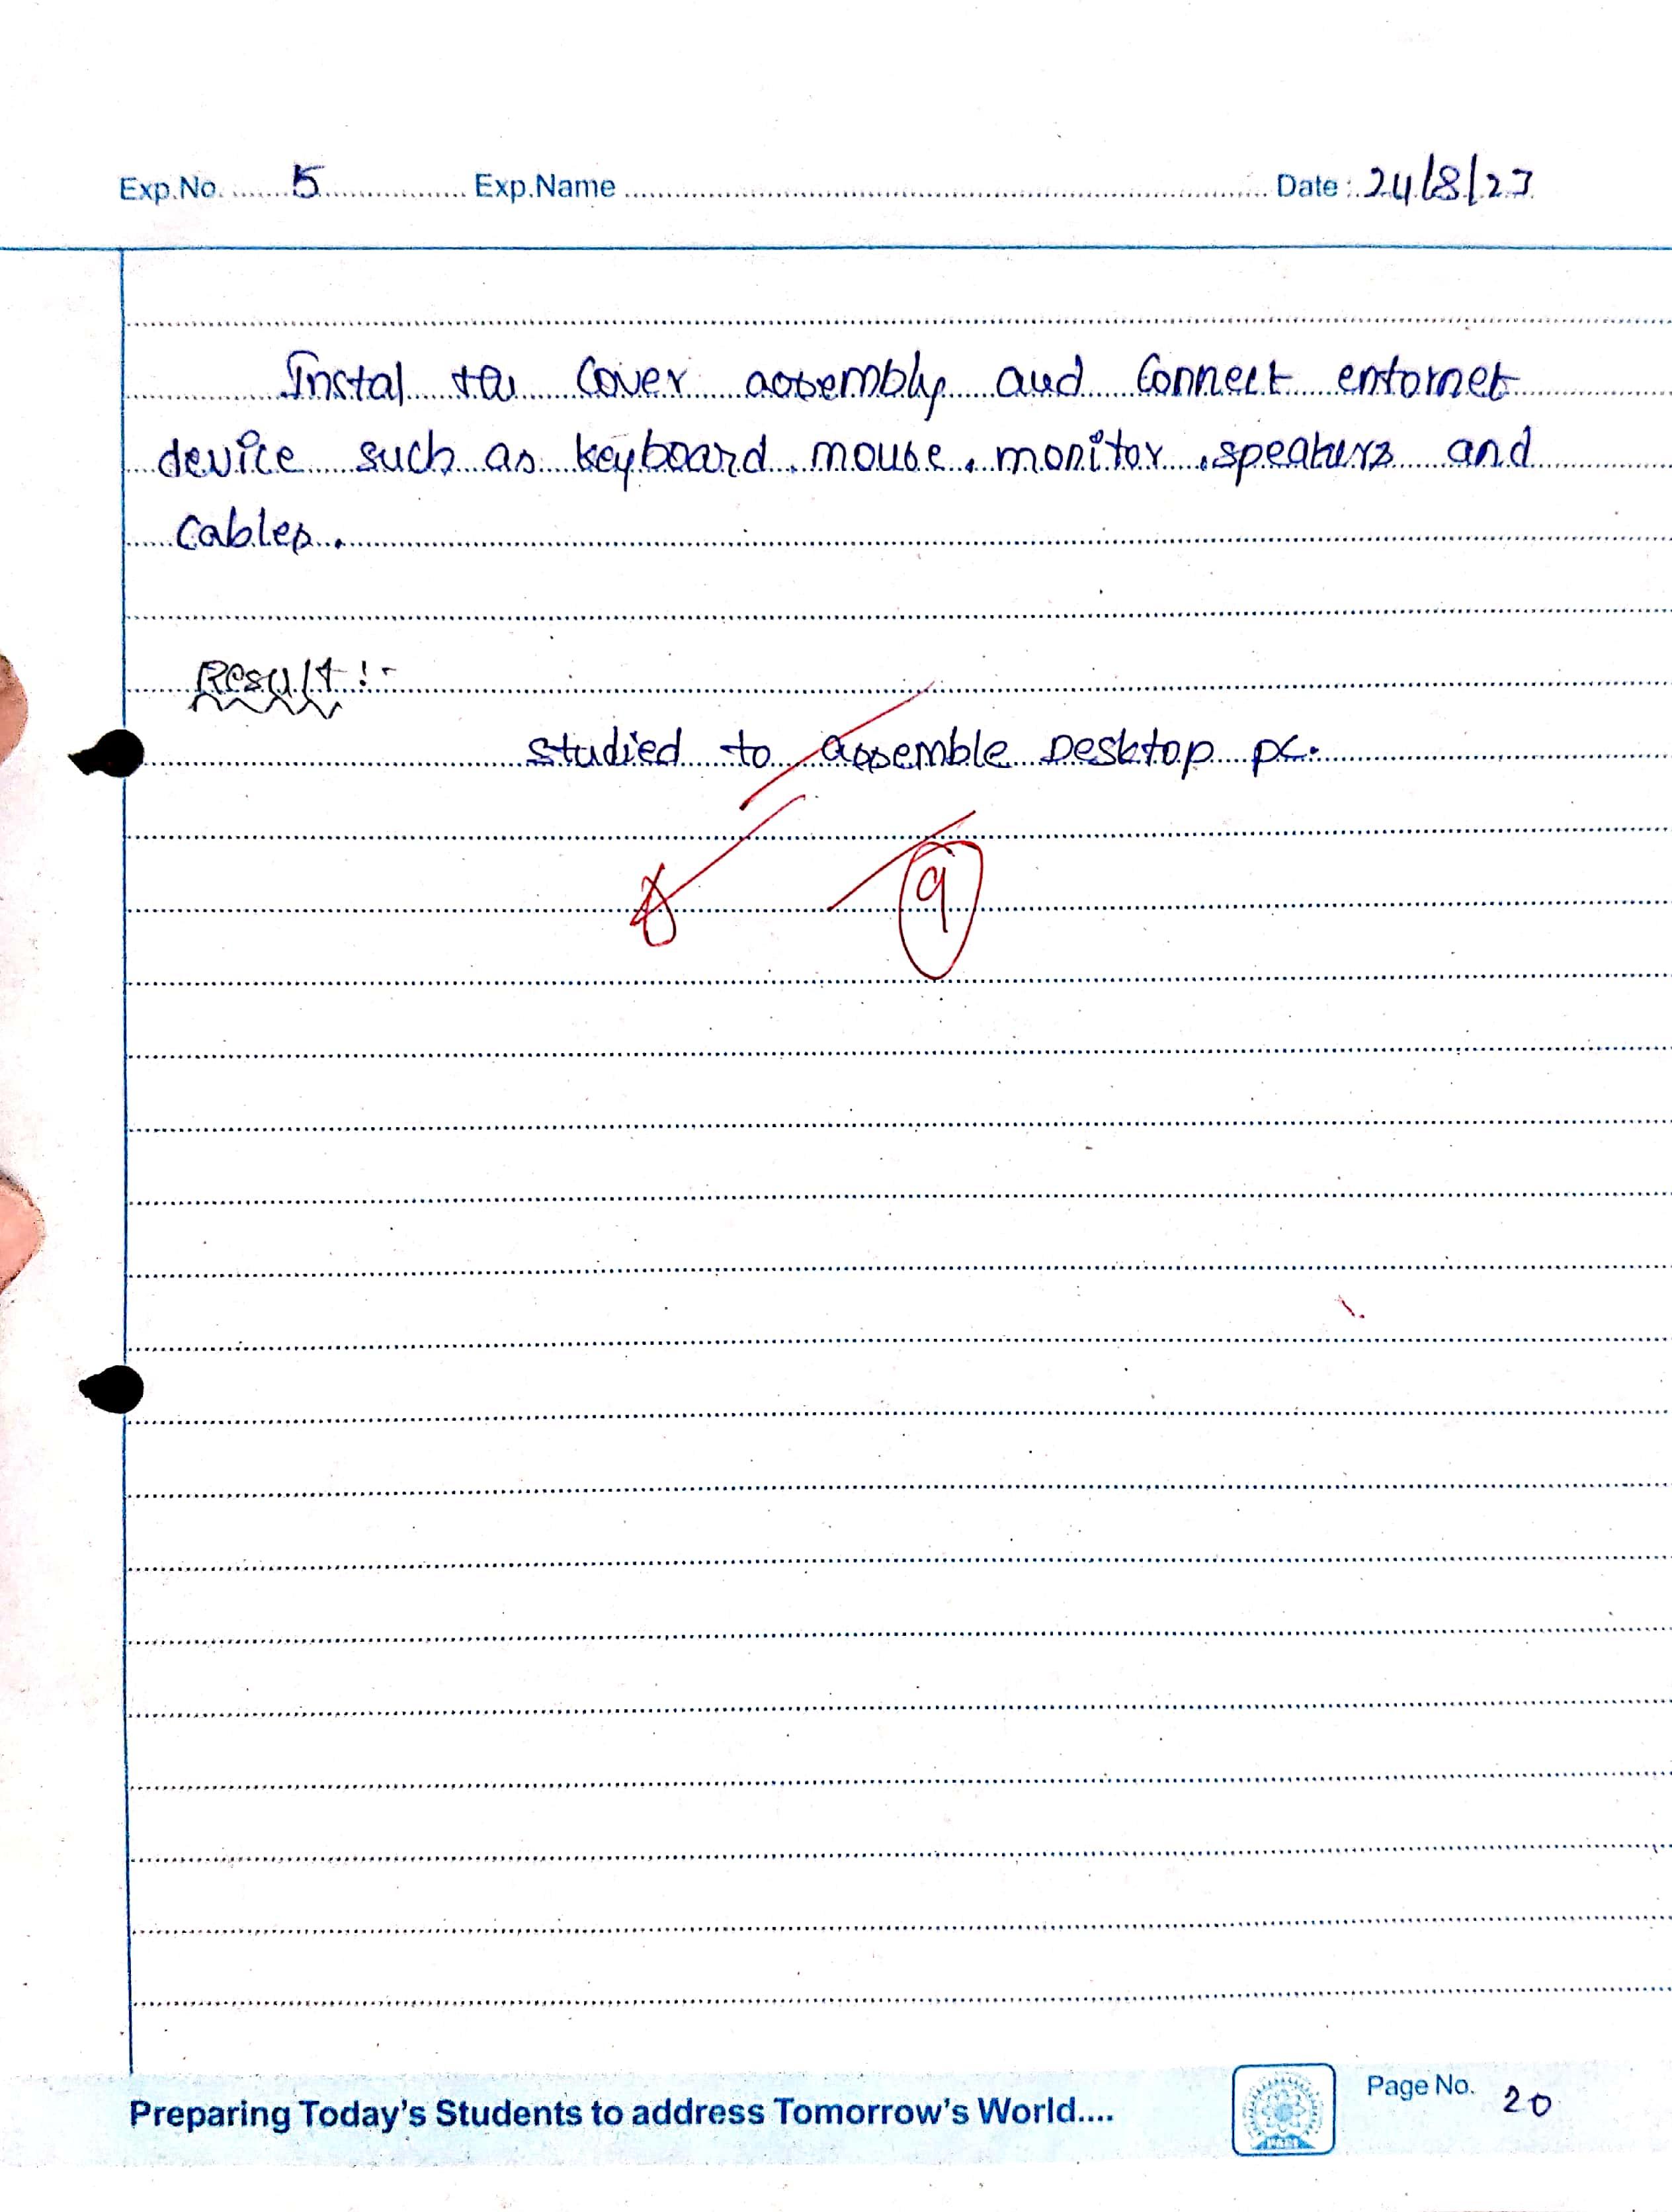 Exp.No. 5 Exp.Name Date: 24/8/23
Instal the Cover assembly and Connect enternet
device such as keyboard, mouse, monitor, speakers and
Cables.
Result:-
studied to assemble Desktop pc.
9
Preparing Today's Students to address Tomorrow's World....
Page No. 20